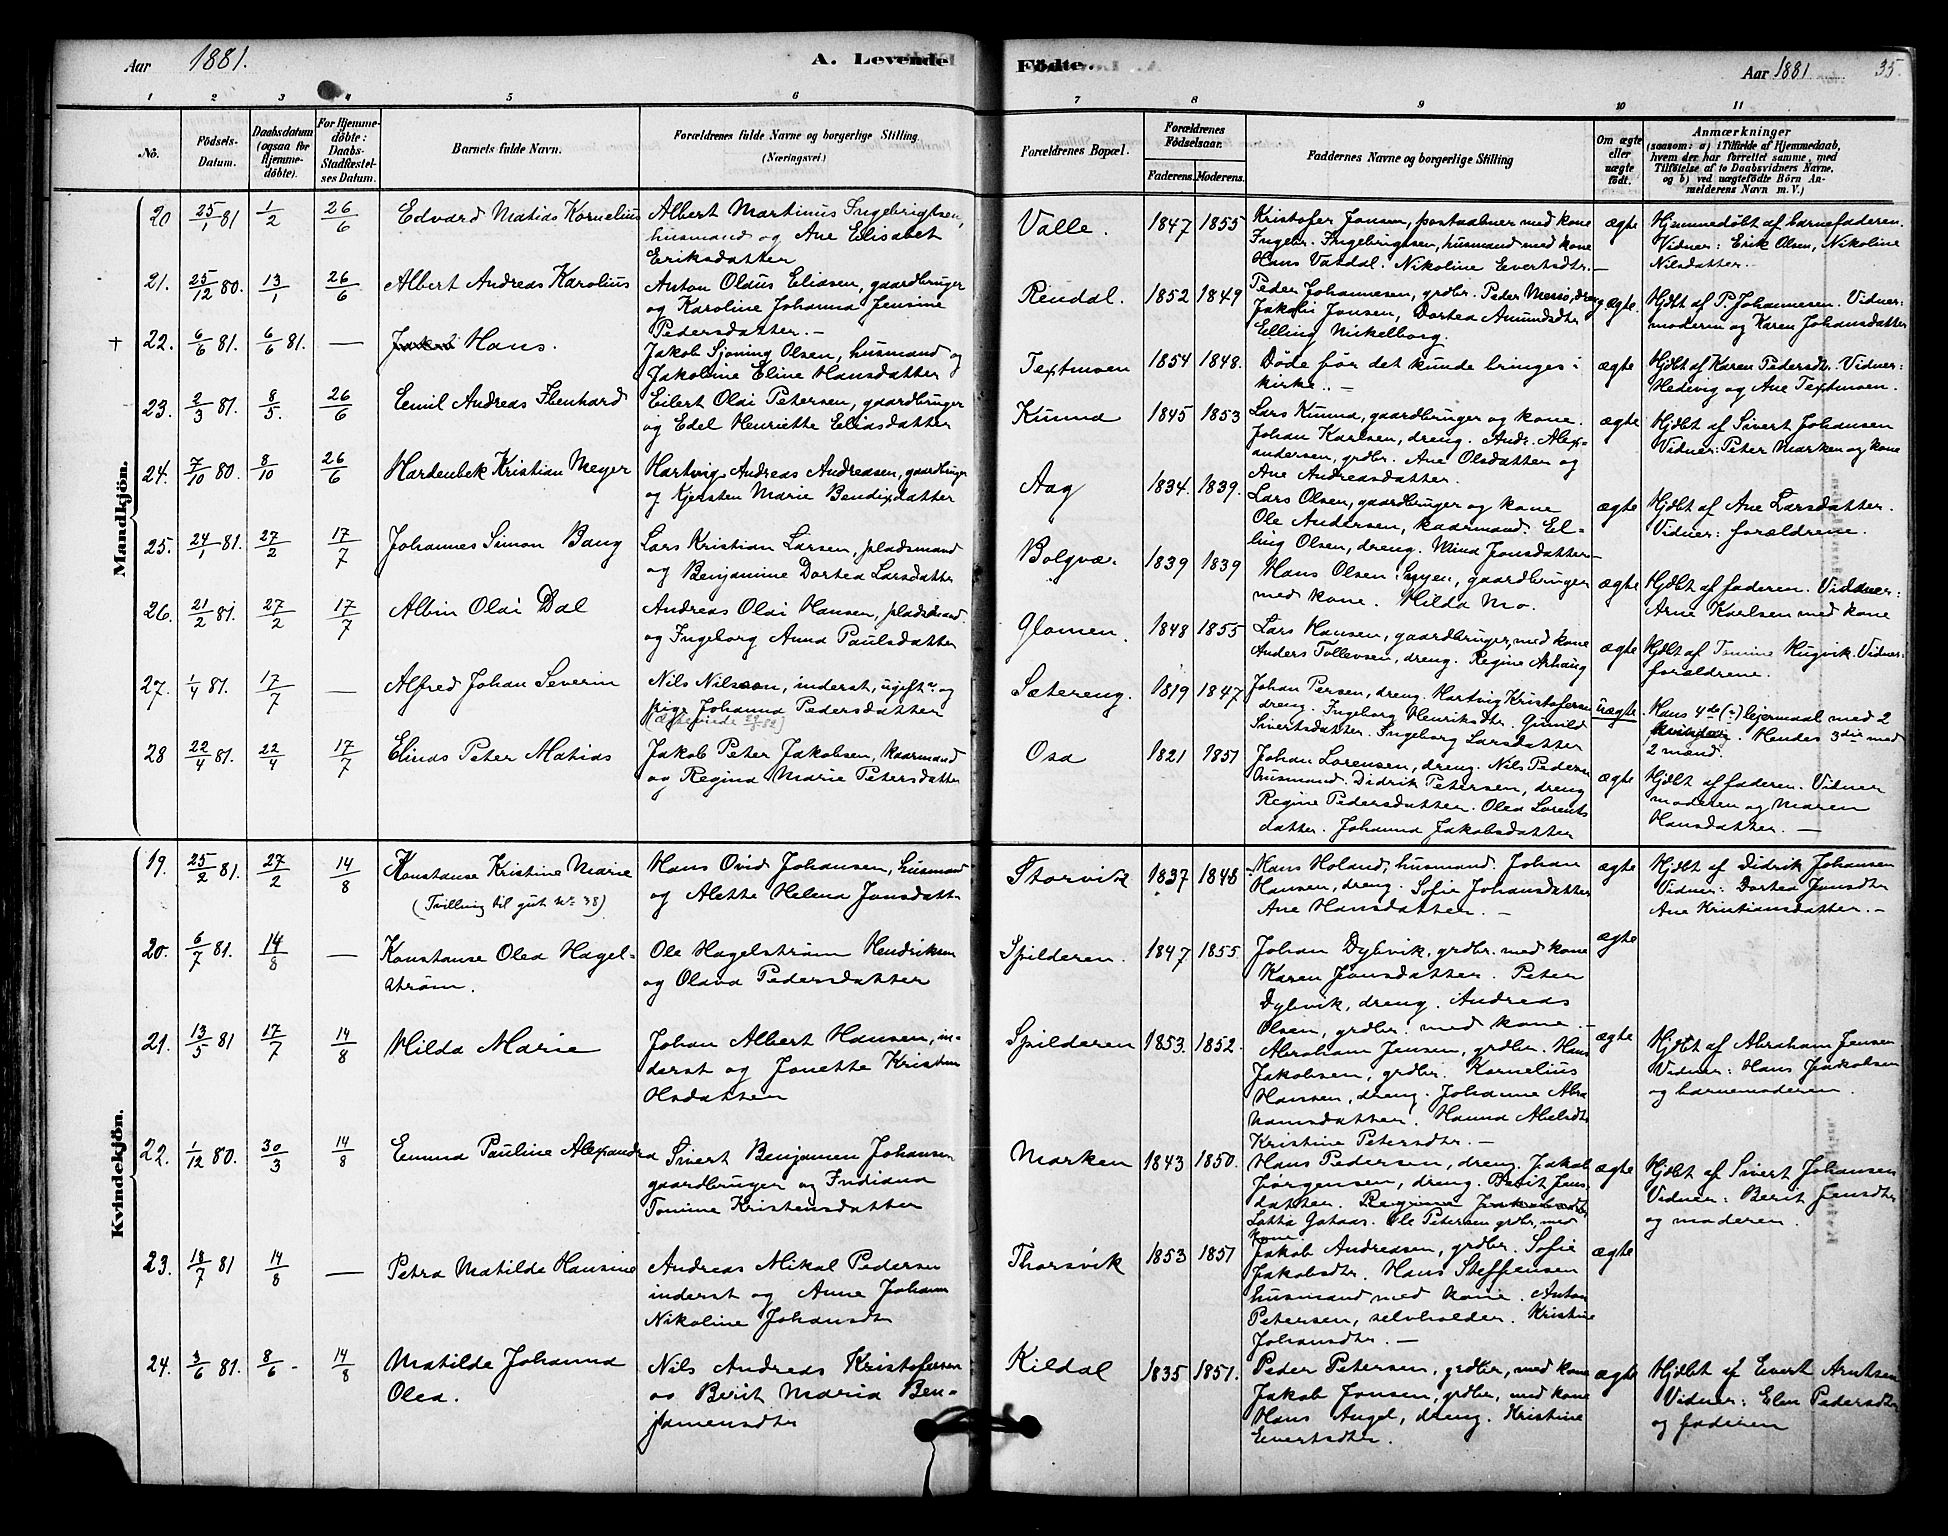 Aar 1881.
A. Levende
Födte.
Aar 1881
35.
1 2 3 4 5 6 7 8 9 10 11
No.
Födsels-
Datum.
Daabsdatum
(ogsaa for
Hjemme-
döbte).
For Hjemme-
döbte:
Daabs-
Stadfæstel-
ses Datum.
Barnets fulde Navn.
Forældrenes fulde Navne og borgerlige Stilling.
(Næringsvei.)
Forældrenes Bopæl.
Forældrenes
Födselsaar.
Faderens. Moderens.
Faddernes Navne og borgerlige Stilling
Om ægte
eller
uægte
födt.
Anmærkninger
(saasom: a) i Tilfælde af Hjemmedaab,
hvem der har forrettet samme, med
Tilföielse af to Daabsvidners Navne,
og b) ved uægtefödte Börn An-
melderens Navn m. V.)
Mandkjön.
20 25/1 81 1/2 26/6 Edvard Matias Kornelius
Albert Martinus Ingebrigtsen,
husmand og Ane Elisabet
Eriksdatter
Valle. 1847 1855
Kristofer Jonsen, postaabner med kone
Ingebr. Ingebrigtsen, husmand med kone
Hans Vatdal. Nikoline Evertsdtr.
ægte
Hjemmedøbt af barnefaderen.
Vidner: Erik Olsen, Nikoline
Nilsdatter.
21. 25/12 80. 13/1 26/6 Albert Andreas Karolius
Anton Oldus Eliasen, gaardbruger
og Karoline Johanna Jensine
Pedersdatter.
Rendal. 1852 1849
Peder Johannesen, grdbr. Peder Messø, dreng
Jakob Jonsen, Dortea Amundsdtr
Elling Nickelborg.
ægte.
Hjdbt af P. Johannesen. Vidner:
moderen og Karen Johansdatter
+ 22. 6/6 81. 6/6 81. — Hans.
Jakob Sjøning Olsen, husmand og
Jakobine Eline Hansdatter
Textmoen 1854 1848.
Døde før det kunde bringes i
kirke.
ægte
Hjdbt af Karen Pedersdtr. Vidner:
Hedevig og Ane Textmoen.
23. 2/3 81. 8/5. 26/6 Emil Andreas Ebenhard
Eilert Olai Petersen, gaardbruger
og Edel Henriette Eliasdatter
Kunna 1845 1853
Lars Kunna, gaardbruger og kone.
Johan Karlsen, dreng. Andr. Alex-
andersen, grdbr. Ane Olsdatter og
Ane Andreasdatter.
ægte
Hjdbt af Sivert Johansen
Vidner: Peter Marken og kone
24. 7/10 80. 8/10 26/6 Hardenbek Kristian Meyer
Hartvig Andreas Andreasen, gaardbruger
og Kjersten Marie Bendixdatter
Aag 1834. 1839.
Lars Olsen, gaardbruger og kone
Ole Andersen, kaarmand. El-
ling Olsen, dreng. Mina Jonsdatter
ægte
Hjdbt af Ane Larsdatter.
Vidner: forældrene.
25. 24/1 81. 27/2 17/7 Johannes Simon Bang
Lars Kristian Larsen, pladsmand
og Benjamine Dortea Larsdatter
Bolgvæ. 1839 1839
Hans Olsen, gaardbruger
med kone. Hilda Mo.
ægte
Hjdbt af faderen. Vidner:
Arne Karlsen med kone
26. 21/2 81. 27/2 17/7 Albin Olai Dal
Andreas Olai Hansen, pladsmand
og Ingeborg Anna Paulsdatter
Glomen. 1848 1855
Lars Hansen, gaardbruger, med kone
Anders Tollevsen, dreng. Regine Arhaug
ægte
Hjdbt af Tomine Hugvik. Vidner:
forældrene.
27. 1/4 81. 17/7 — Alfred Johan Severin
Nils Nilsson, inderst, ugift og
pige Johanna Pedersdatter
Sætereng. 1819 1847
Johan Persen, dreng. Hartvig Kristofersen
dreng. Ingeborg Henriksdtr. Gunild
Sivertsdatter. Ingeborg Larsdatter
uægte
Hans 4de (?) leiermaal med 2
Hendes 3die med
2 mænd.
28 22/4 81. 22/4 17/7 Elinas Peter Matias
Jakob Peter Jakobsen, kaarmand
og Regina Marie Petersdatter
Osa 1821 1851
Johan Lorensen, dreng. Nils Pedersen
husmand. Didrik Petersen, dreng
Regine Pedersdatter. Olea Lorents
datter. Johanna Jakobsdatter
ægte
Hjdbt af faderen. Vidner
moderen og Maren
Hansdatter. —
Kvindekjön.
19. 25/2 81. 27/2 14/8 Konstanse Kristine Marie
(Tvilling til gut No 38)
Hans Ovid Johansen, husmand
og Alette Helena Jonsdatt.
Storvik 1837 1848
Hans Holand, husmand. Johan
Hansen, dreng. Sofie Johansdatter
Ane Hansdatter. —
ægte
Hjdbt af Didrik Johansen
Vidner: Dortea Jonsdtr
Ane Kristiansdatter. —
20. 6/7 81. 14/8 — Konstanse Olea Hagel-
strøm.
Ole Hagelstrøm Hendriksen
og Olava Pedersdatter
Spilderen. 1847 1855
Johan Dybvik, grdbr. med kone
Karen Jonsdatter. Peter
Dybvik, dreng. Andreas
Olsen, grdbr. med kone. —
ægte
21. 13/5 81 17/7 14/8 Hilda Marie
Johan Albert Hansen, in-
derst og Jonette Kristine
Olsdatter
Spilderen 1853. 1852.
Abraham Jensen, grdbr. Hans
Jakobsen, grdbr. Kornelius
Hansen, dreng. Johanne Abra
hamsdatter. Hanna Abelsdtr
Kristine Petersdtr. —
ægte
Hjdbt af Abraham Jensen
Vidner: Hans Jakobsen
og barnemoderen.
22. 1/12 80. 30/3 14/8 Emma Pauline Alexandra
Sivert Benjamin Johansen
gaardbruger og Indiana
Tomine Kristensdatter
Marken 1843 1850.
Hans Pedersen, dreng. Jakob
Jørgensen, dreng. Berit Jens
datter. Regine
Lotta Ole Petersen grdbr, med
kone.
ægte
Hjdbt af Sivert Johansen
Vidner: Berit Jensdtr
og moderen.
23. 18/7 81 14/8 — Petra Matilde Hansine
Andreas Mikal Pedersen
inderst og Anne Johanna
Nikoline Johansdtr
Thorsvik 1853 1851
Jakob Andreasen, grdbr. Sofie
Jakobsdtr. Hans Steffensen
husmand med kone. Anton
Petersen, selvholder. Kristine
Johansdtr. —
ægte
24. 3/6 81. 8/6 14/8 Matilde Johanna
Olea.
Nils Andreas Kristofersen
og Berit Maria Ben-
jamensdtr
Kildal 1835 1851.
Peder Petersen, grdbr, med kone
Jakob Jonsen, grdbr, med kone
Hans Angel, dreng. Kristine
Evertsdtr.
ægte
Hjdbt af Evert Arntsen
Vidner: Elen Pedersdtr
og faderen